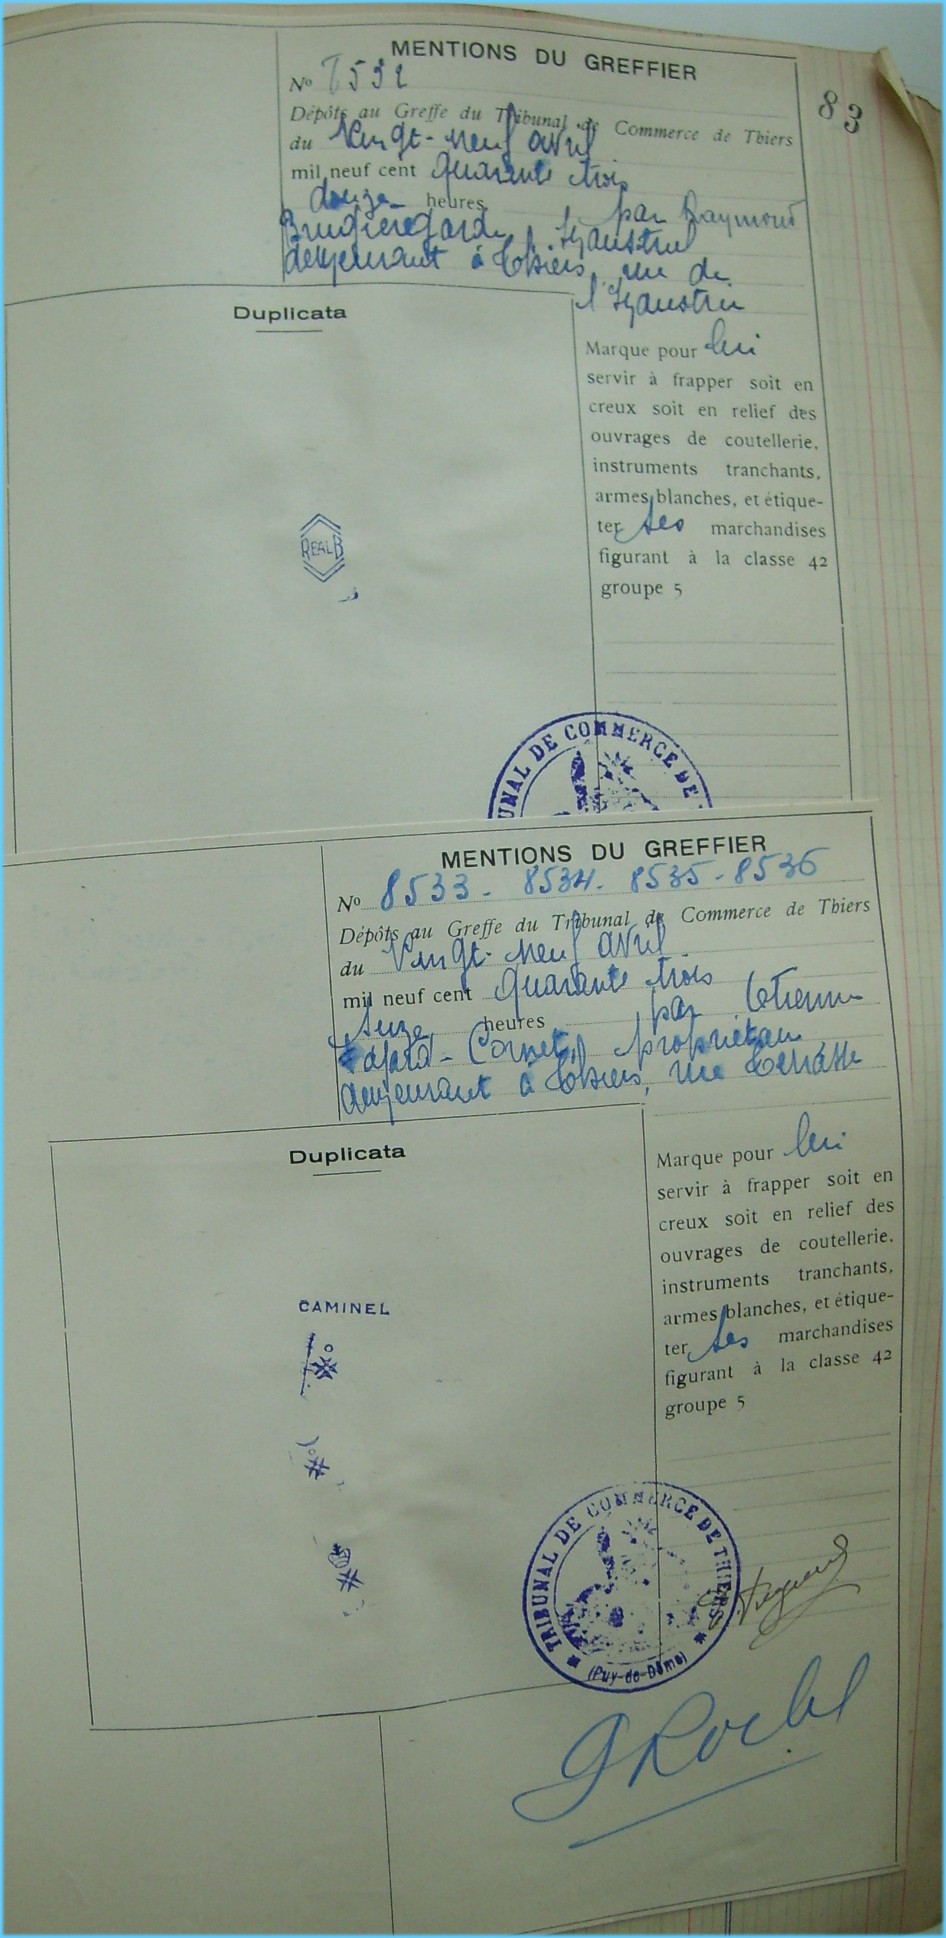 MENTIONS DU GREFFIER
83
No 8532
Dépôts au Greffe du Tribunal de Commerce de Thiers
du Vingt-neuf avril
mil neuf cent quarante trois
douze heures par Raymond
Brugieregarde
demeurant à Thiers, rue de
Duplicata
Marque pour lui
servir à frapper soit en
creux soit en relief des
ouvrages de coutellerie,
instruments tranchants,
armes blanches, et étique-
ter ses marchandises
figurant à la classe 42
groupe 5
REALB
TRIBUNAL DE COMMERCE DE
MENTIONS DU GREFFIER
No 8533 - 8534 - 8535 - 8536
Dépôts au Greffe du Tribunal de Commerce de Thiers
du Vingt-neuf avril
mil neuf cent quarante trois
heures par Etienne
Cornet, propriétaire
demeurant à Thiers, rue Terrasse
Duplicata
Marque pour lui
servir à frapper soit en
creux soit en relief des
ouvrages de coutellerie,
instruments tranchants,
armes blanches, et étique-
ter ses marchandises
figurant à la classe 42
groupe 5
CAMINEL
TRIBUNAL DE COMMERCE DE THIERS
(Puy-de-Dôme)